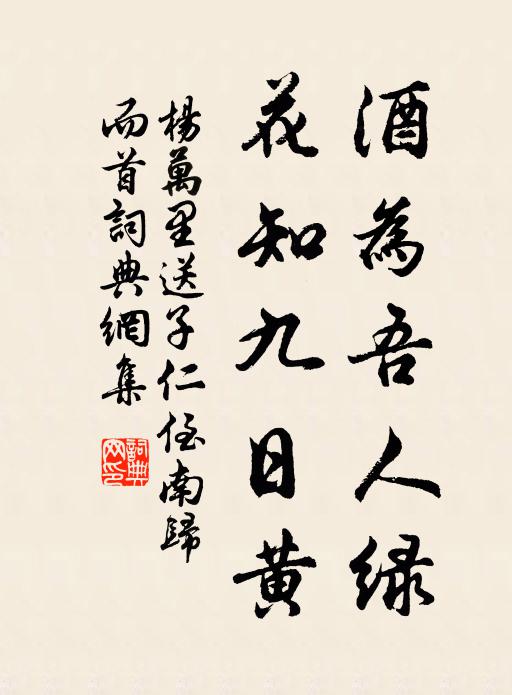 酒為吾人緑
花知九日黄
楊萬里送子仁侄南歸
兩首詞典網集
詞典
網印